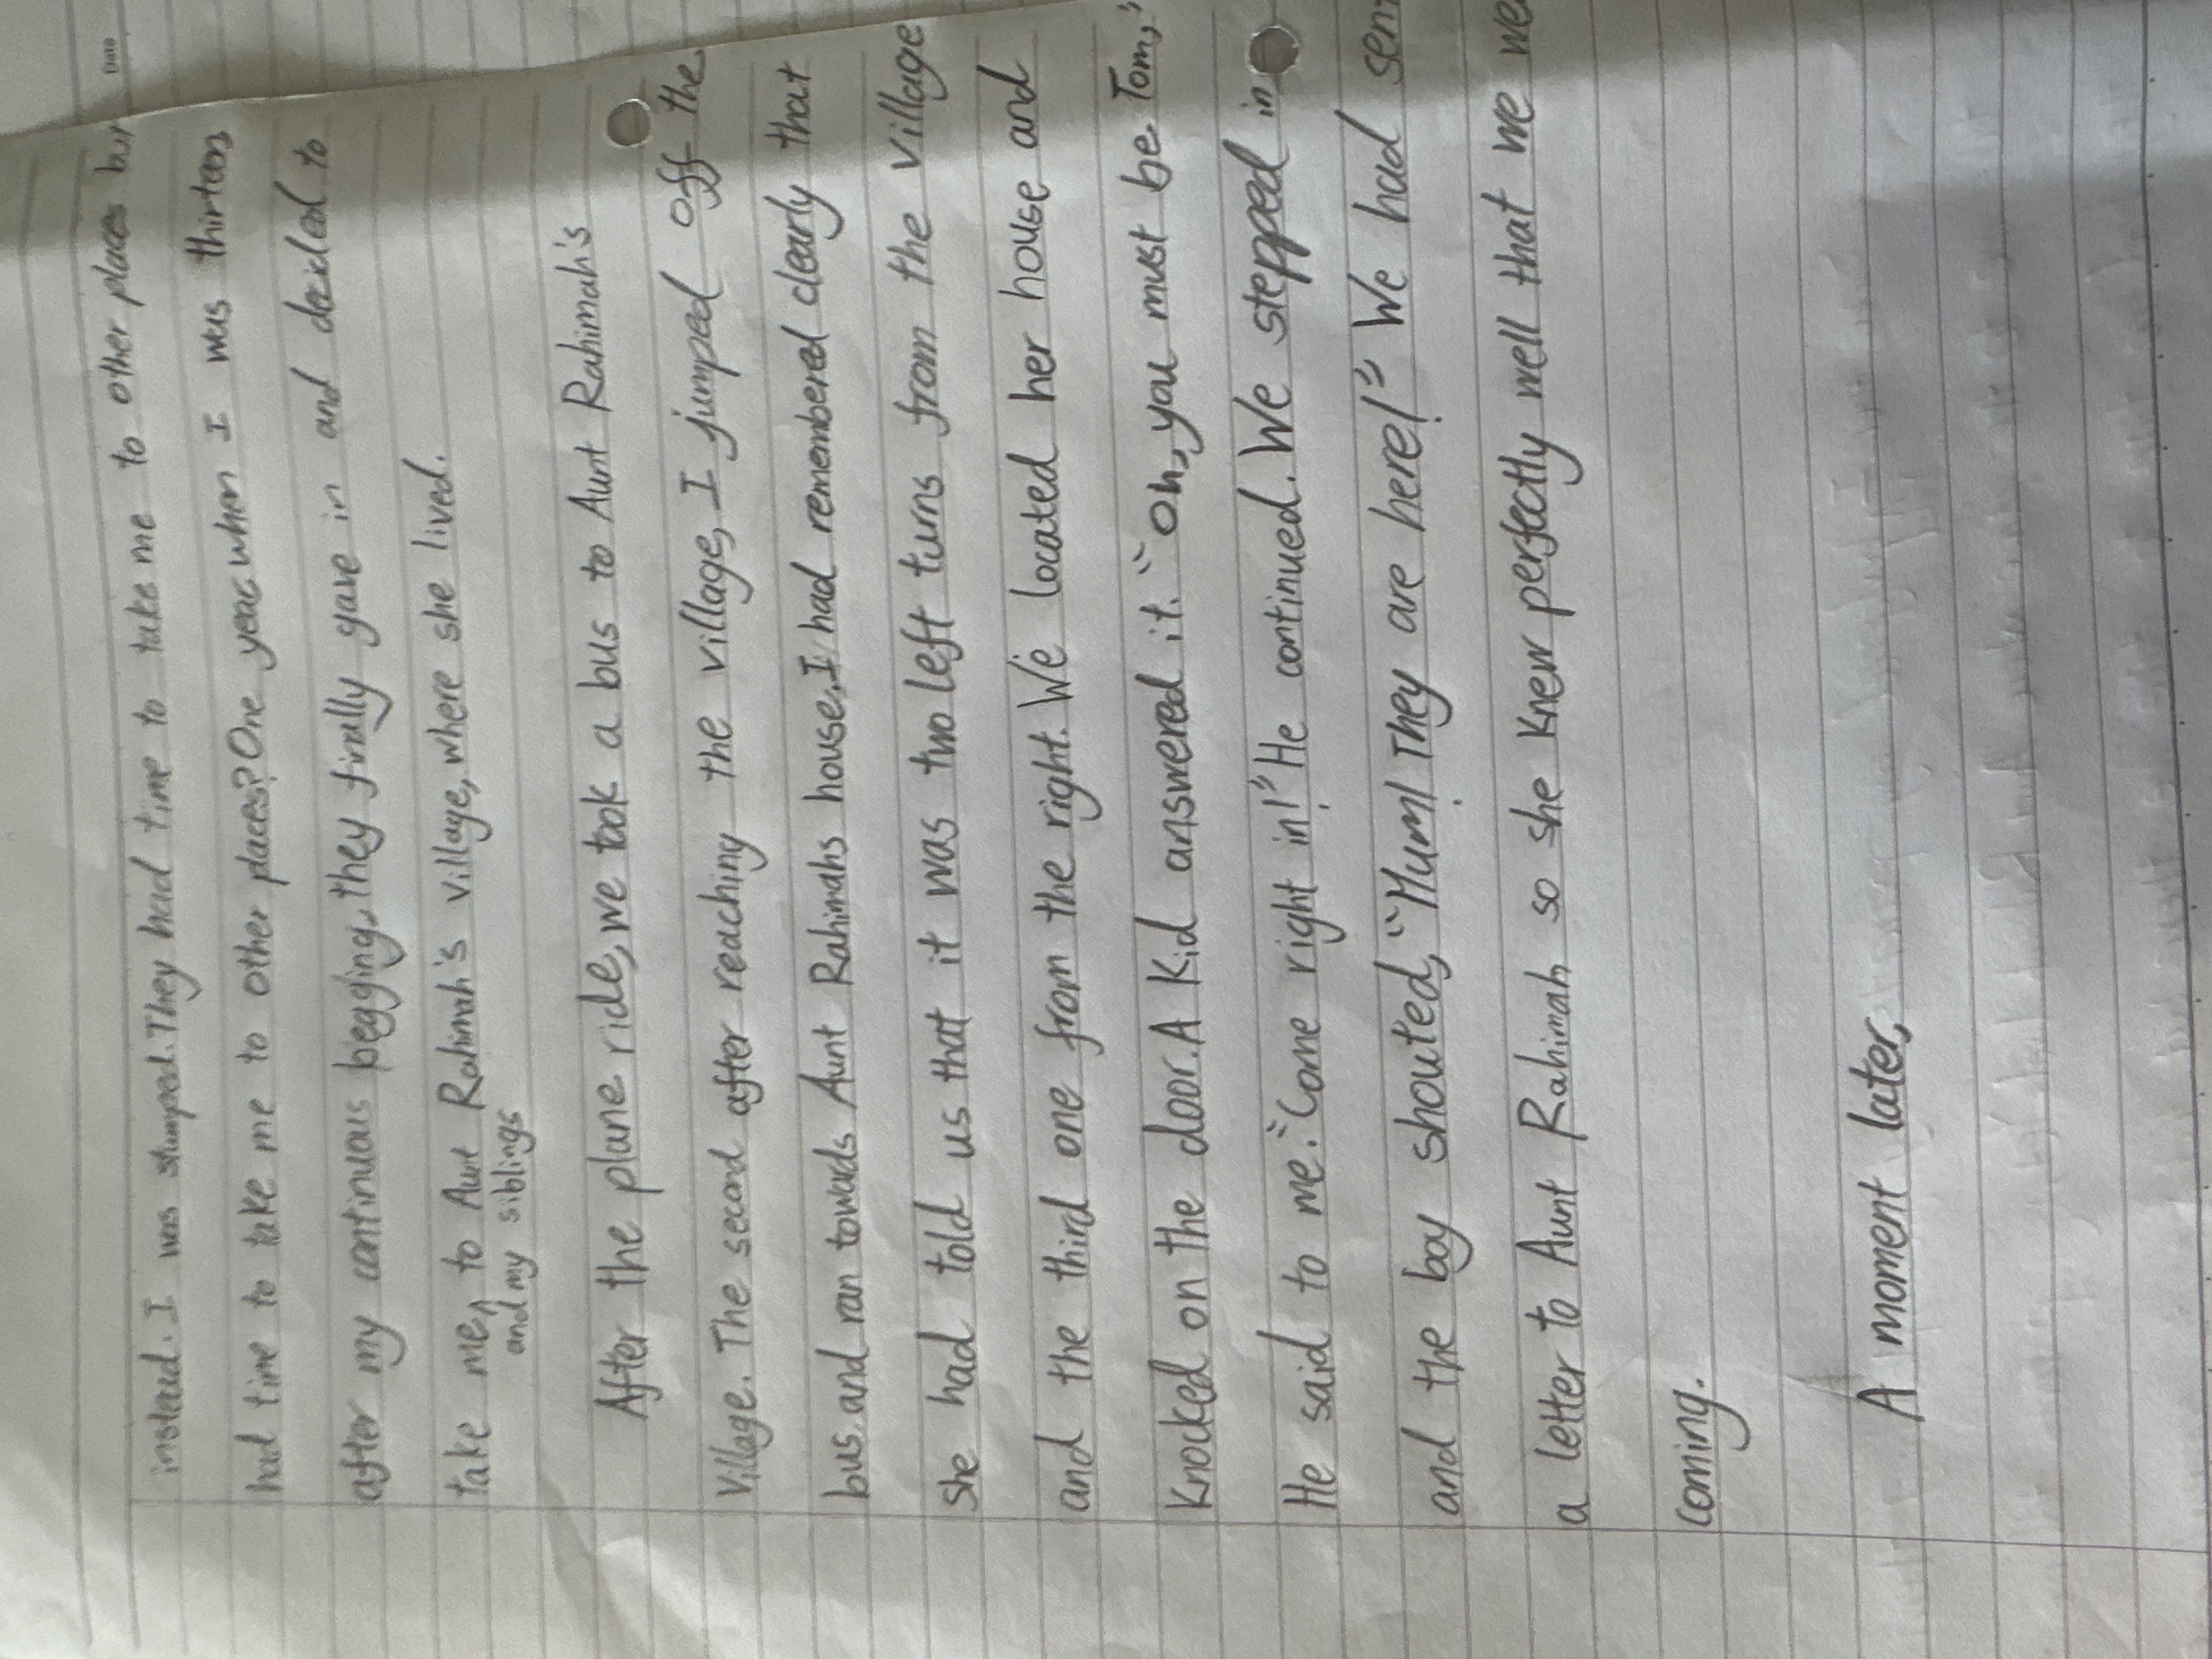 Date
instead. I was stumped. They had time to take me to other places but
had time to take me to other places? One year when I was thirteen,
after my continuous begging, they finally gave in and decided to
take me, to Aunt Rahimah's village, where she lived.
and my siblings
After the plane ride, we took a bus to Aunt Rahimah's
Village. The second after reaching the village, I jumped off the
bus and ran towards Aunt Rahimahs house. I had remembered clearly that
she had told us that it was two left turns from the village
and the third one from the right. We located her house and
knocked on the door. A kid answered it. "Oh, you must be Tom,"
He said to me. "Come right in!" He continued. We stepped in
and the boy shouted, "Mum! They are here!" We had sen
a letter to Aunt Rahimah so she knew perfectly well that we we
coming.
A moment later,